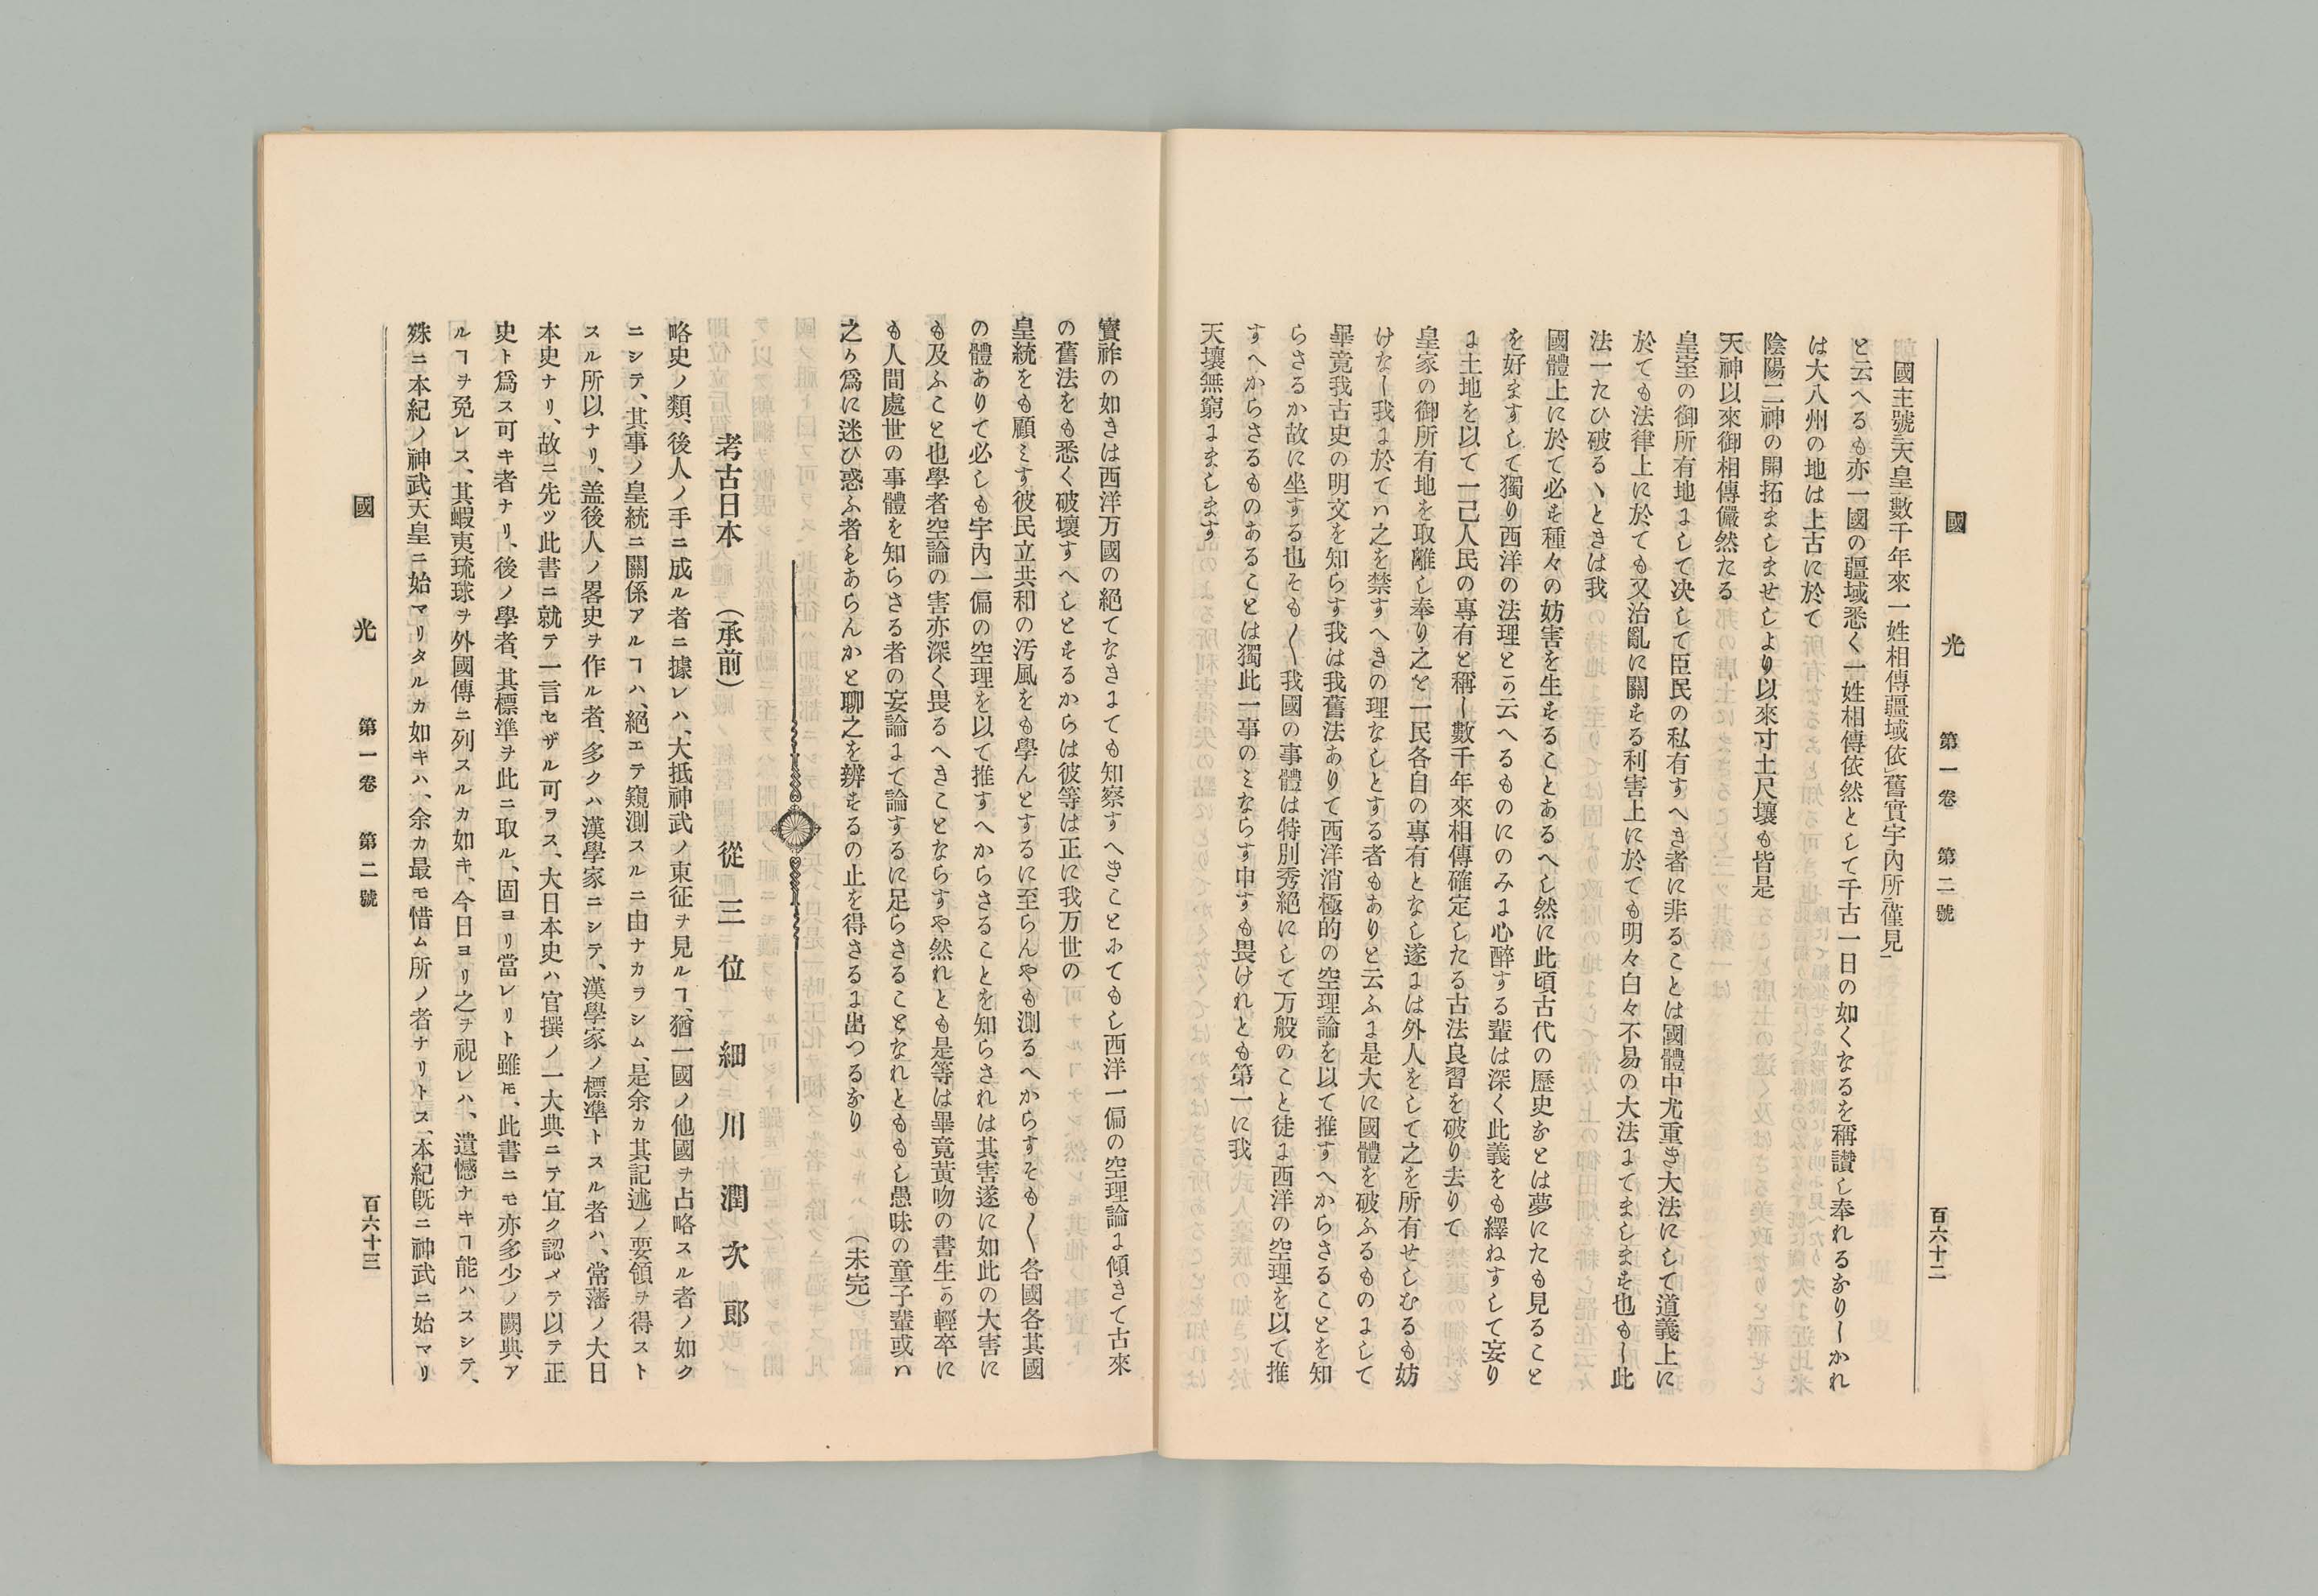 國光 第一卷 第二號 百六十二
國主號天皇數千年來一姓相傳疆域依舊實宇內所僅見
と云へるも亦一國の疆域悉く一姓相傳依然として千古一日の如くなるを稱讃し奉れるなりしかれ
は大八州の地は上古に於て
陰陽二神の開拓ましませしより以來寸土尺壤も皆是
天神以來御相傳儼然たる
皇室の御所有地にして決して臣民の私有すへき者に非ることは國體中尤重き大法にして道義上に
於ても法律上に於ても又治亂に關する利害上に於ても明々白々不易の大法にてまします也もし此
法一たひ破るヽときは我
國體上に於て必す種々の妨害を生することあるへし然に此頃古代の歷史なとは夢にたも見ること
を好ますして獨り西洋の法理とか云へるものにのみに心醉する輩は深く此義をも繹ねすして妄り
に土地を以て一己人民の專有と稱し數千年來相傳確定したる古法良習を破り去りて
皇家の御所有地を取離し奉り之を一民各自の專有となし遂には外人をして之を所有せしむるも妨
けなし我に於てハ之を禁すへきの理なしとする者もありと云ふに是大に國體を破ふるものにして
畢竟我古史の明文を知らす我は我舊法ありて西洋消極的の空理論を以て推すへからさることを知
らさるか故に坐する也そも〱我國の事體は特別秀絕にして万般のこと徒に西洋の空理を以て推
すへからさるものあることは獨此一事のミならす申すも畏けれとも第一に我
天壤無窮にまします
寳祚の如きは西洋万國の絕てなきにても知察すへきことにてもし西洋一偏の空理論に傾きて古來
の舊法をも悉く破壞すへしとするからは彼等は正に我万世の
皇統をも顧ミす彼民立共和の汚風をも學んとするに至らんやも測るへからすそも〱各國各其國
の體ありて必しも宇內一偏の空理を以て推すへからさることを知らされは其害遂に如此の大害に
も及ふこと也學者空論の害亦深く畏るへきことならすや然れとも是等は畢竟黃吻の書生か輕卒に
も人間處世の事體を知らさる者の妄論にて論するに足らさることなれとももし愚昧の童子輩或ハ
之か爲に迷ひ惑ふ者もあらんかと聊之を辨するの止を得さるに出つるなり （未完）
考古日本 （承前） 從三位 細川潤次郎
略史ノ類、後人ノ手ニ成ル者ニ據レハ、大抵神武ノ東征ヲ見ルヿ、猶一國ノ他國ヲ占略スル者ノ如ク
ニシテ、其事ノ皇統ニ關係アルヿハ、絕エテ窺測スルニ由ナカラシム、是余カ其記述ノ要領ヲ得スト
スル所以ナリ、盖後人ノ畧史ヲ作ル者、多クハ漢學家ニシテ、漢學家ノ標凖トスル者ハ、常藩ノ大日
本史ナリ、故ニ先ツ此書ニ就テ一言セザル可ヲス、大日本史ハ官撰ノ一大典ニテ宜ク認メテ以テ正
史ト爲ス可キ者ナリ、後ノ學者、其標準ヲ此ニ取ル、固ヨリ當レリト雖モ、此書ニモ亦多少ノ闕典ア
ルヿヲ免レス、其蝦夷琉球ヲ外國傳ニ列スルカ如キ、今日ヨリ之ヲ視レハ、遺憾ナキヿ能ハスシテ、
殊ニ本紀ノ神武天皇ニ始マリタルカ如キハ、余カ最モ惜ム所ノ者ナリトス、本紀旣ニ神武ニ始マリ
國光 第一卷 第二號 百六十三